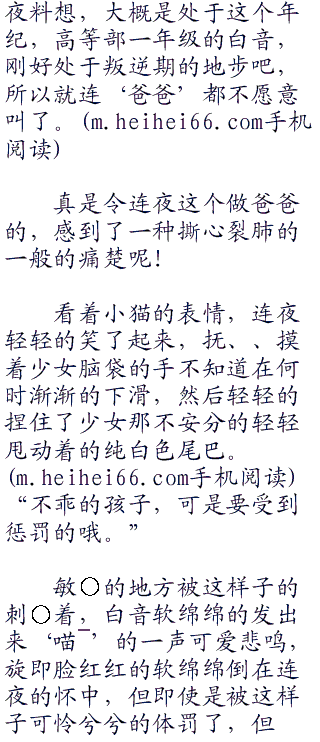 夜料想，大概是处于这个年
纪，高等部一年级的白音，
刚好处于叛逆期的地步吧，
所以就连‘爸爸’都不愿意
叫了。(m.heihei66.com手机
阅读)
真是令连夜这个做爸爸
的，感到了一种撕心裂肺的
一般的痛楚呢！
看着小猫的表情，连夜
轻轻的笑了起来，抚、、摸
着少女脑袋的手不知道在何
时渐渐的下滑，然后轻轻的
捏住了少女那不安分的轻轻
甩动着的纯白色尾巴。
(m.heihei66.com手机阅读)
“不乖的孩子，可是要受到
惩罚的哦。”
敏○的地方被这样子的
刺○着，白音软绵绵的发出
来‘喵¯’的一声可爱悲鸣，
旋即脸红红的软绵绵倒在连
夜的怀中，但即使是被这样
子可怜兮兮的体罚了，但